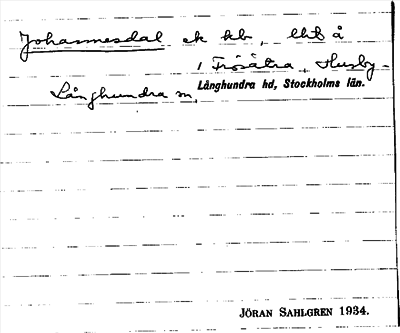 Johannesdal ek kb, lht å
1 Frösätra, Husby-
Långhundra sn,
Långhundra hd, Stockholms län.
JÖRAN SAHLGREN 1934.